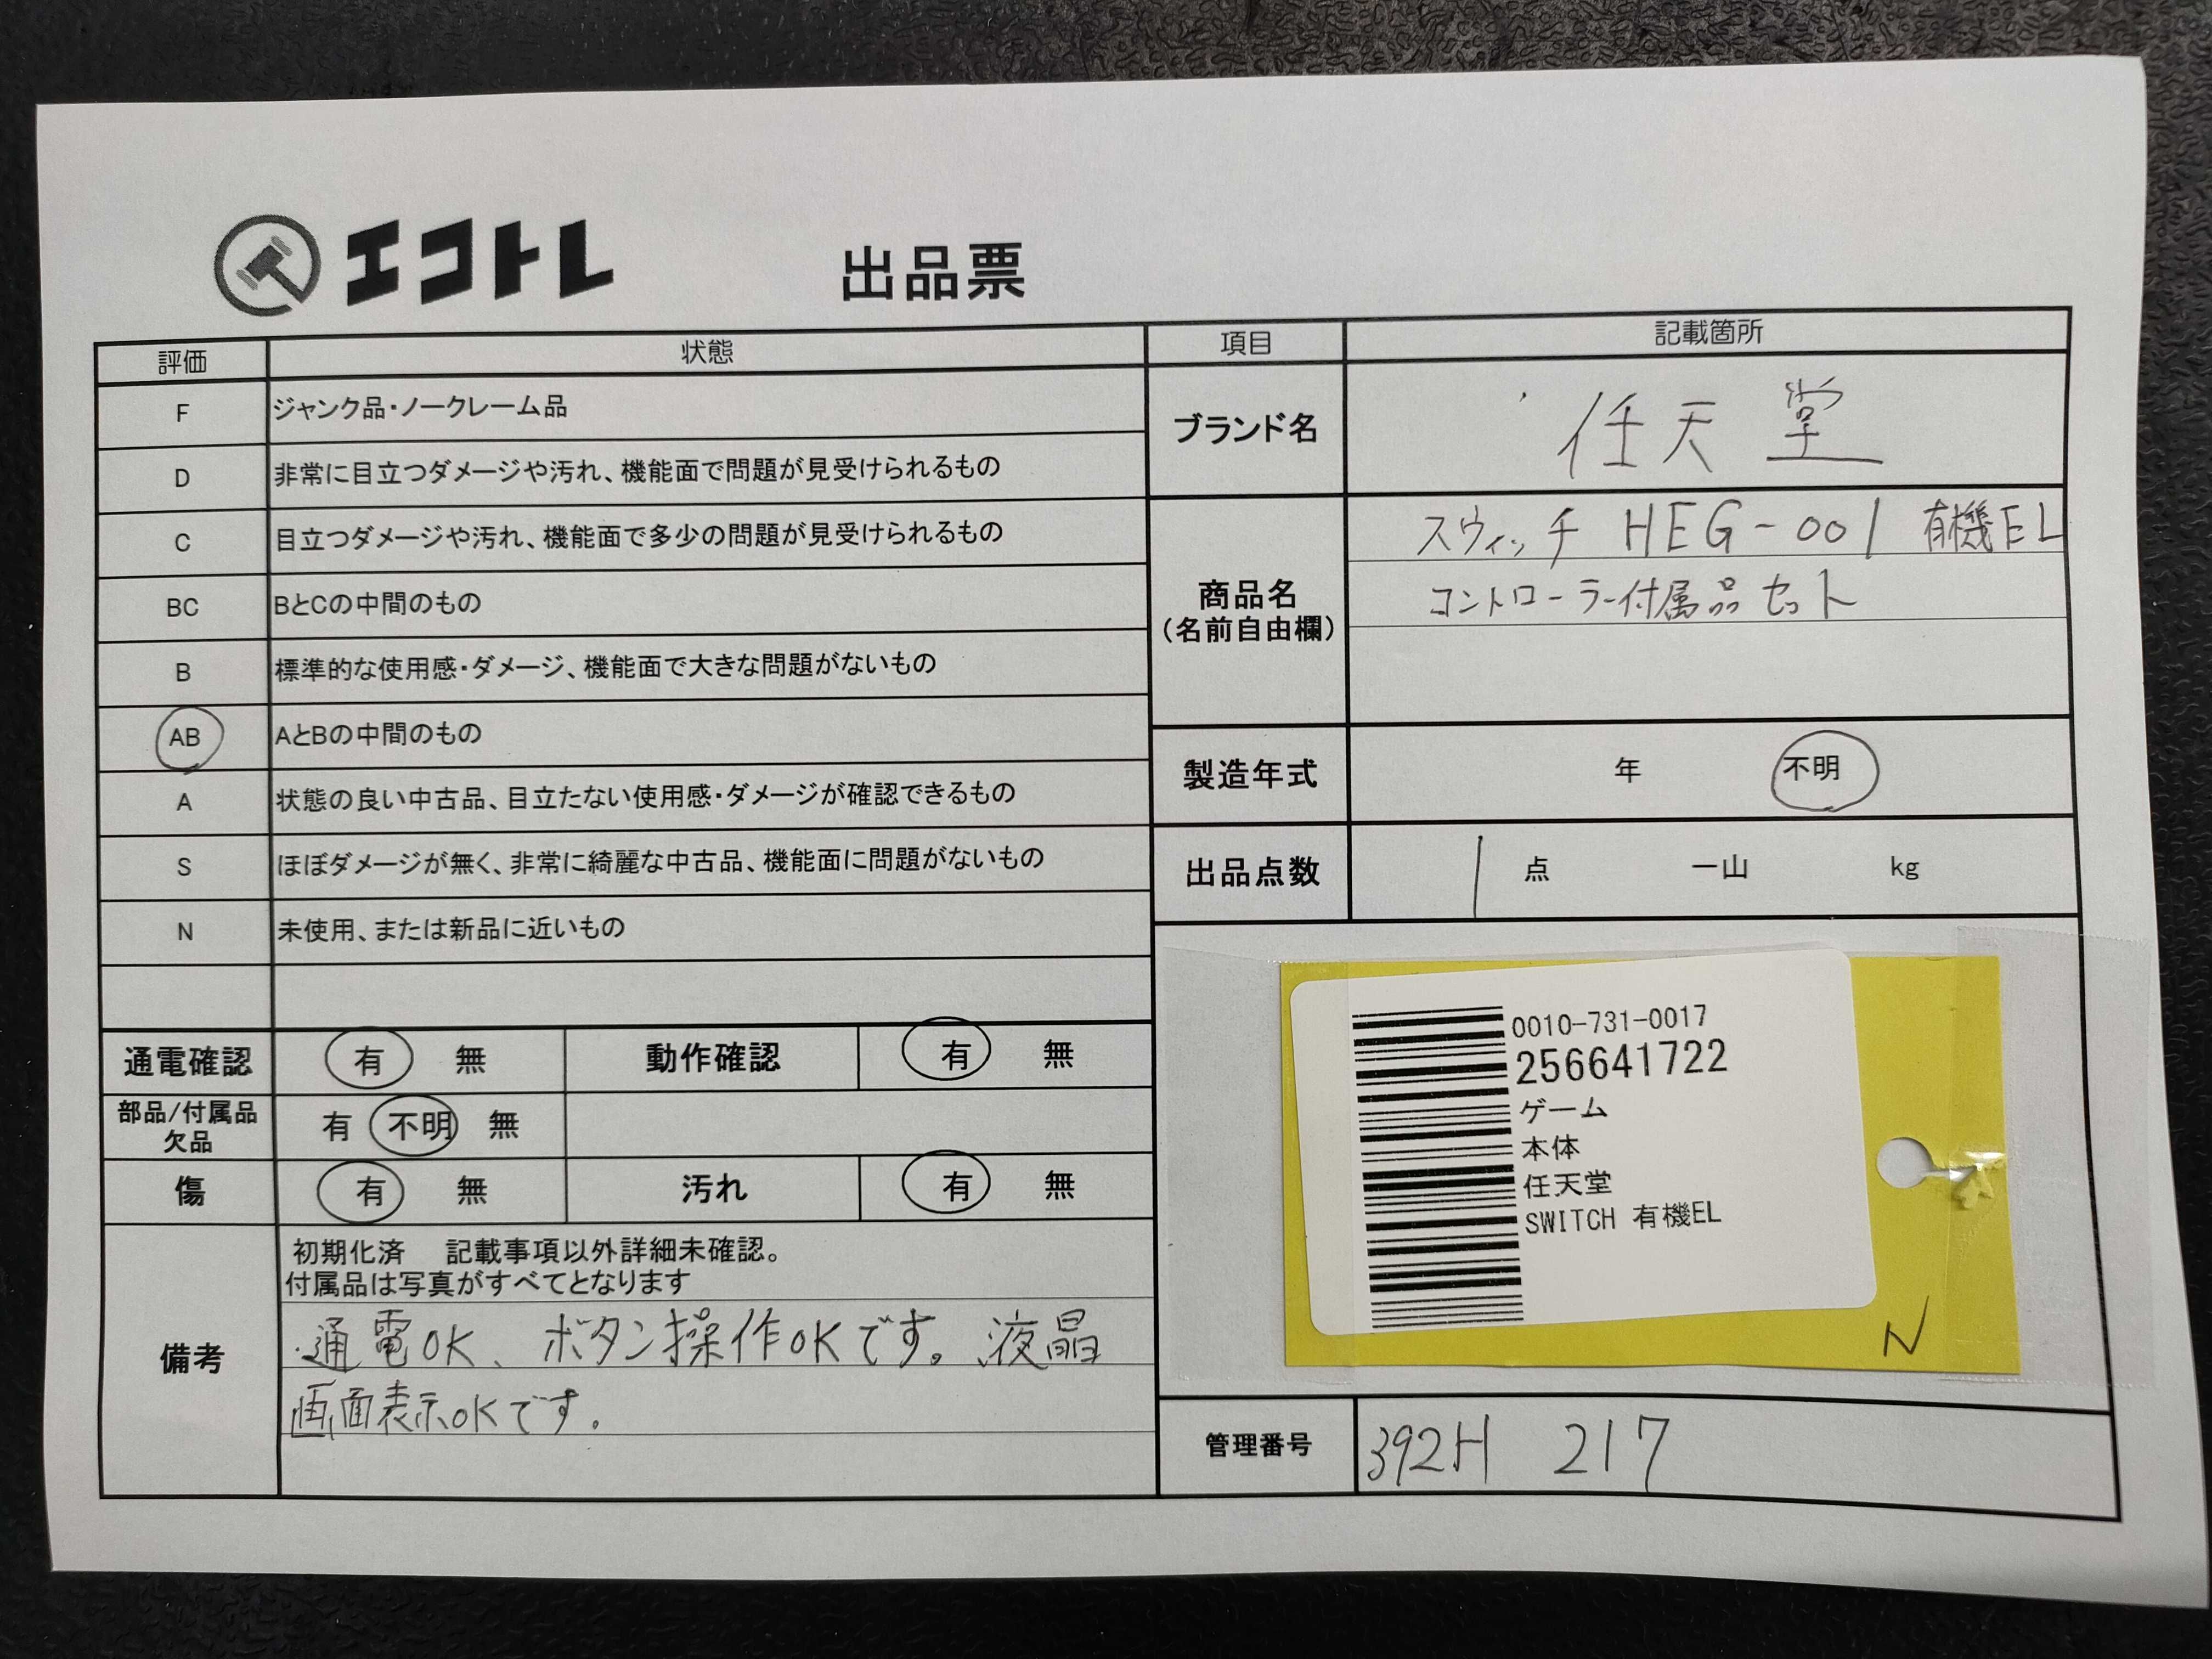 エコトレ 出品票
評価 状態
F ジャンク品・ノークレーム品
D 非常に目立つダメージや汚れ、機能面で問題が見受けられるもの
C 目立つダメージや汚れ、機能面で多少の問題が見受けられるもの
BC BとCの中間のもの
B 標準的な使用感・ダメージ、機能面で大きな問題がないもの
AB AとBの中間のもの
A 状態の良い中古品、目立たない使用感・ダメージが確認できるもの
S ほぼダメージが無く、非常に綺麗な中古品、機能面に問題がないもの
N 未使用、または新品に近いもの
通電確認 有 無 動作確認 有 無
部品/付属品
欠品 有 不明 無
傷 有 無 汚れ 有 無
備考
初期化済 記載事項以外詳細未確認。
付属品は写真がすべてとなります
・通電OK、ボタン操作OKです。液晶
画面表示OKです。
項目 記載箇所
ブランド名 任天堂
商品名
(名前自由欄)
スウィッチ HEG-001 有機EL
コントローラー付属品セット
製造年式 年 不明
出品点数 1 点 一山 kg
0010-731-0017
256641722
ゲーム
本体
任天堂
SWITCH 有機EL
N
管理番号 392H 217